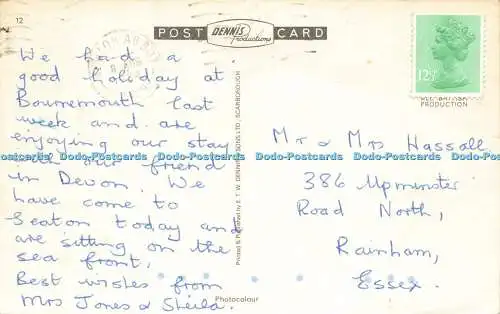 12
POST DENNIS Productions CARD
We had a
good holiday at
Bournemouth last
week and are
enjoying our stay
with our friend
in Devon. We
have come to
Seaton today and
are sitting on the
sea front.
Best wishes from
Mrs Jones & Sheila.
Photocolour
Printed & Published by E. T. W. DENNIS & SONS LTD. SCARBOROUGH
12½P
ALL BRITISH
PRODUCTION
Mr & Mrs Hassall
386 Upminster
Road North,
Rainham,
Essex.
Dodo-Postcards Dodo-Postcards Dodo-Postcards Dodo-Postcards Dodo-Postcards